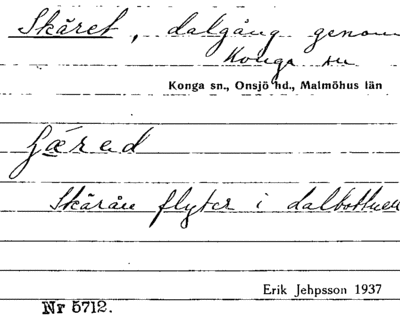 Skäret, dalgång genom
Konga sn
Konga sn., Onsjö hd., Malmöhus län
Skärån flyter i dalbottnen
Erik Jehpsson 1937
Nr 5712.